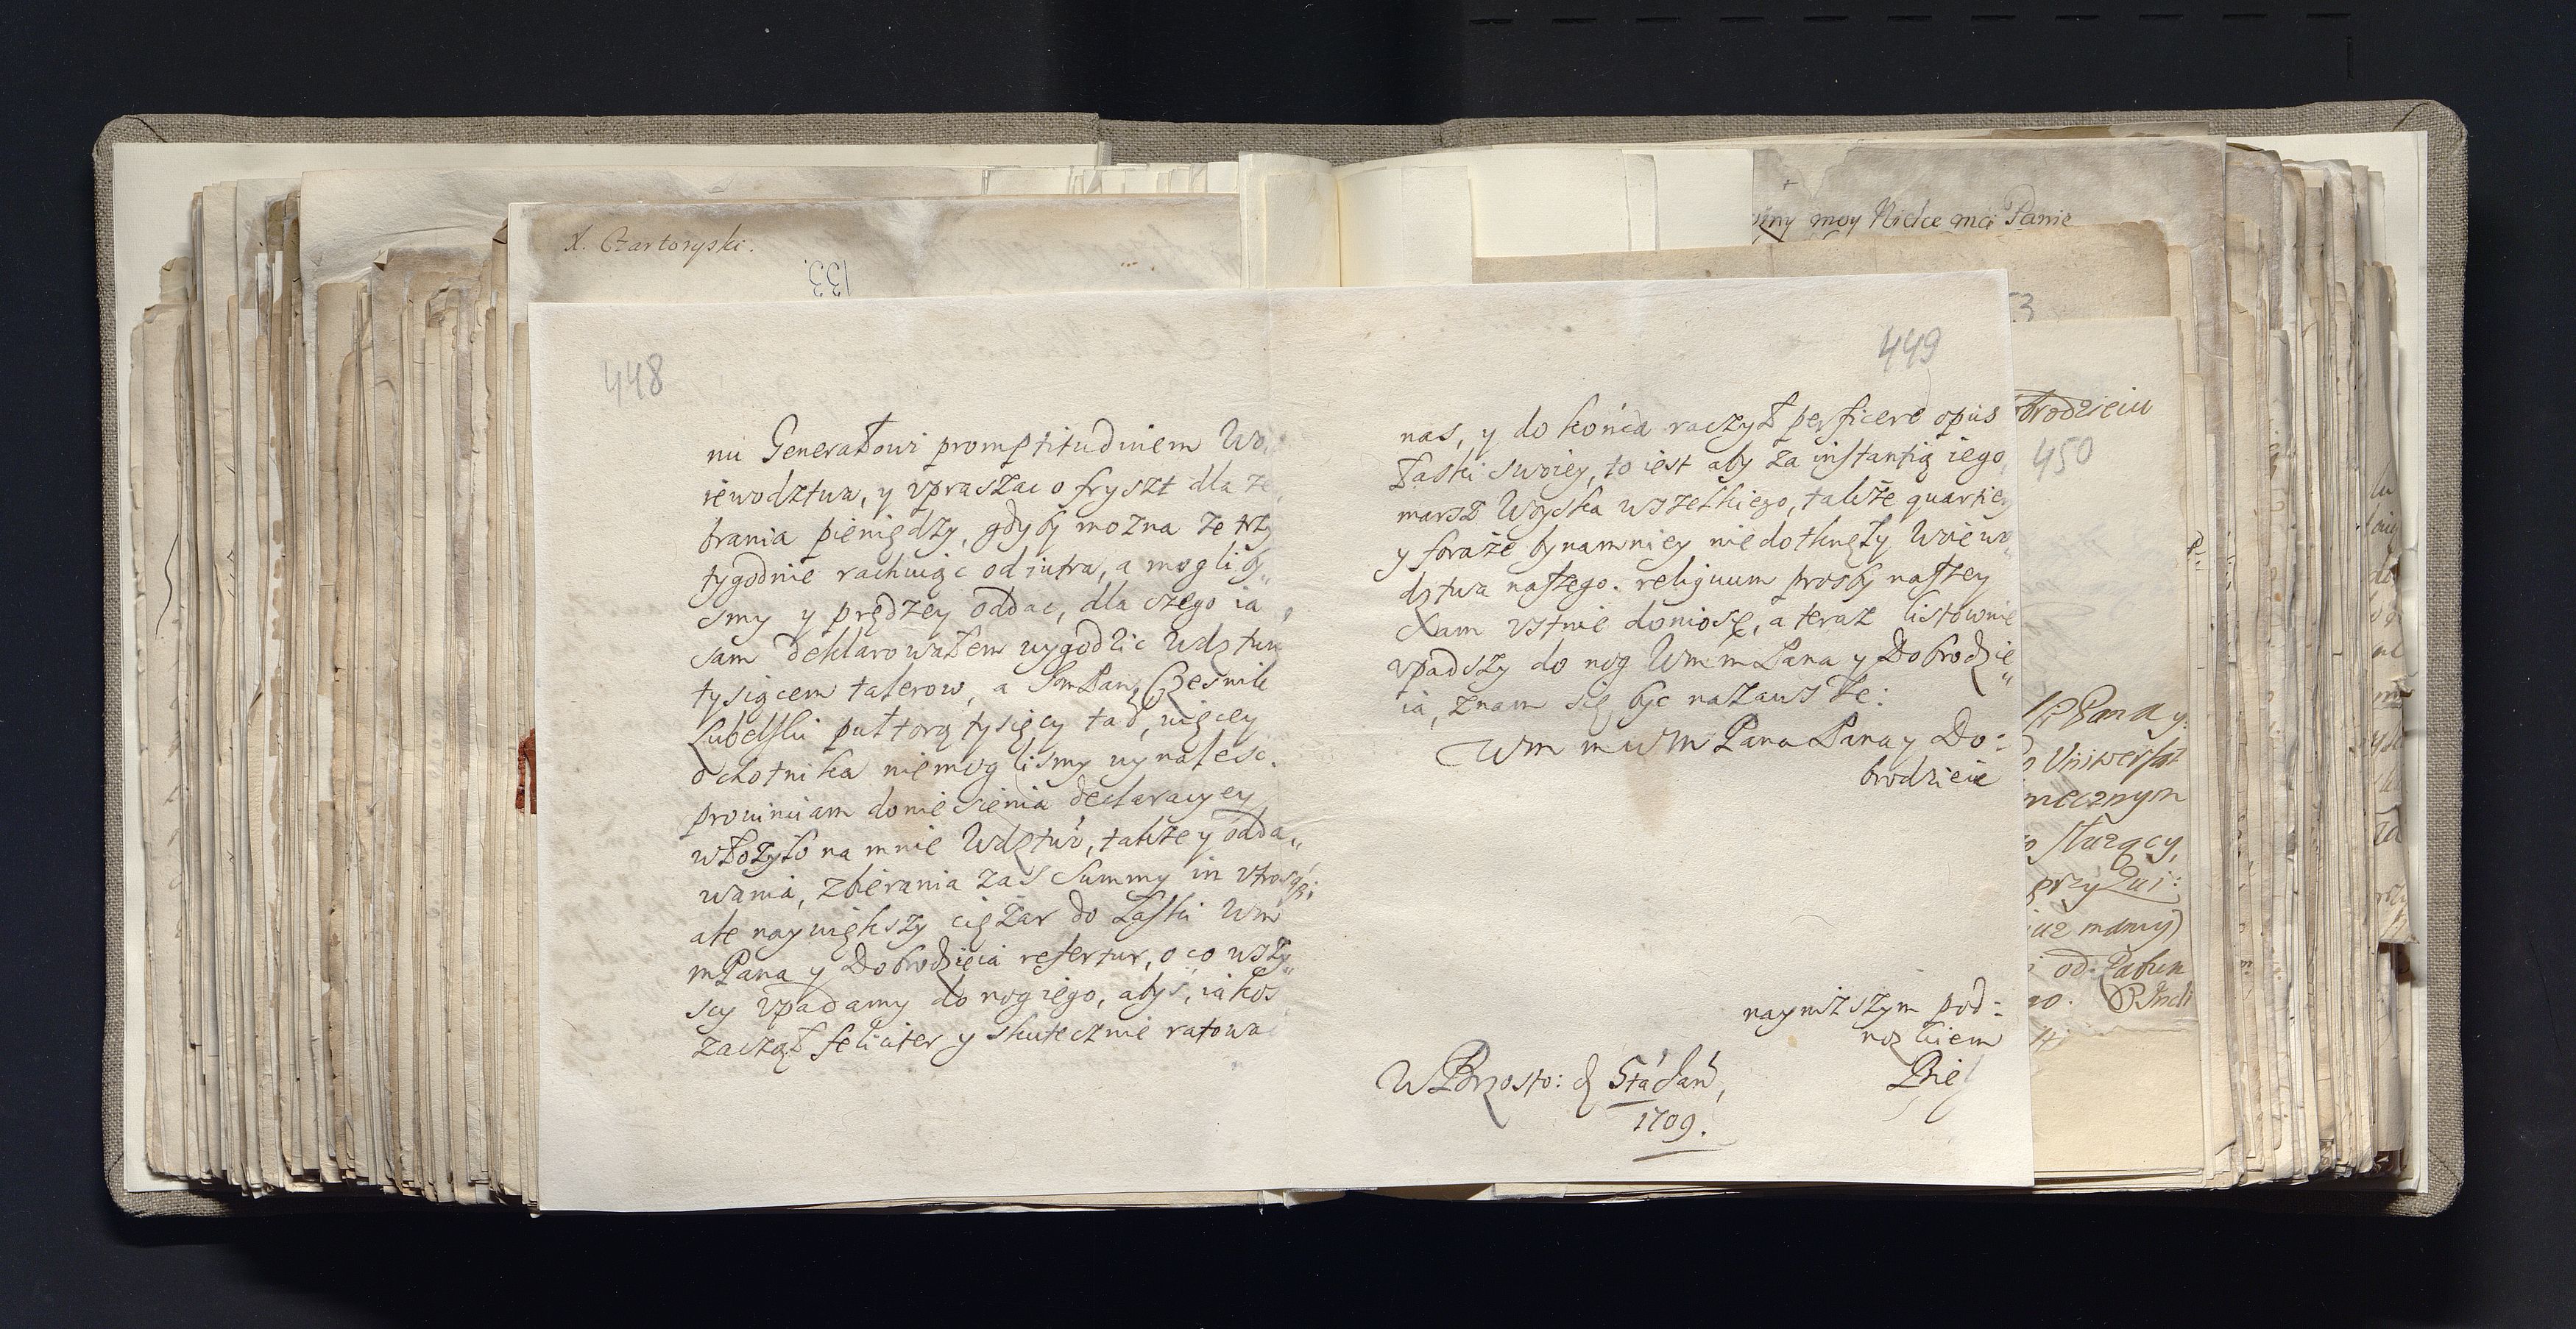 X. Czartoryski.
133.
448
nu Generałowi promptitudinem Wo
iewodztwa, y vpraszac o fryszt dla ze
brania pieniędzy, gdyby mozna ze trzy
tygodnie rachuiąc od iutra, a mogliby„
smy y prędzey oddac, dla czego ia
sam deklarowałem wygodzic Wdztwu
tysiącem talerow, a Czesnik
Lubelski pułtorą tysięcy tal, więcey
ochotnika niemoglismy wynalesc.
prouinciam doniesienia declaracyey
włozyło na mnie Wdztwo, takze y odda„
wania, zbierania zas summy in vtrosq3;
ale naywiększy cięzar do Łaski Wm
mPana y Dobrodzieia refertur, o co wszy„
scy vpadamy do nog iego, abys, iakos
zaczął feliciter y skutecznie ratowa
449
nas, y do końca raczył perficere opus
łaski swoiey, to iest aby za instantią iego
marsz Woyska wszelkiego, takze quartier
y foraże bynamniey niedotknęły Woiewo„
dztwa naszego. reliquum prosby naszey
sam vstnie doniosę, a teraz listownie
vpadszy do nog WmmPana y Dobrodzie„
ia, znam się byc nazawsze:
Wm m wm Pana Pana y Do:
brodzieia
nayniższym pod:
nozkiem
W Brzosto: d
1709.
moy Mci Panie
brodzieiu
450
Pana y
Uniwersał
mecznym
służący,
przy
mamy)
od